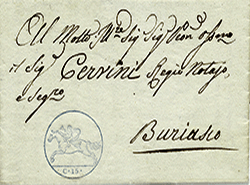 Al Molto Ill.re Sig.r Sig.r Pron.e Osser.mo
il Sig.r Cerrini Regio Notajo,
e Seg.ro
Buriasco
C. 15.